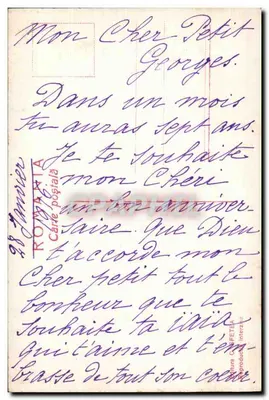 Mon Cher Petit
Georges.
Dans un mois
tu auras sept ans.
Je te souhaite
mon Chéri
un bon anniver
saire que Dieu
t'accorde mon
Cher petit tout le
bonheur que te
souhaite ta iaïa
qui t'aime et t'em
brasse de tout son coeur.
28 Janvier
ROMANIA
Carte postala